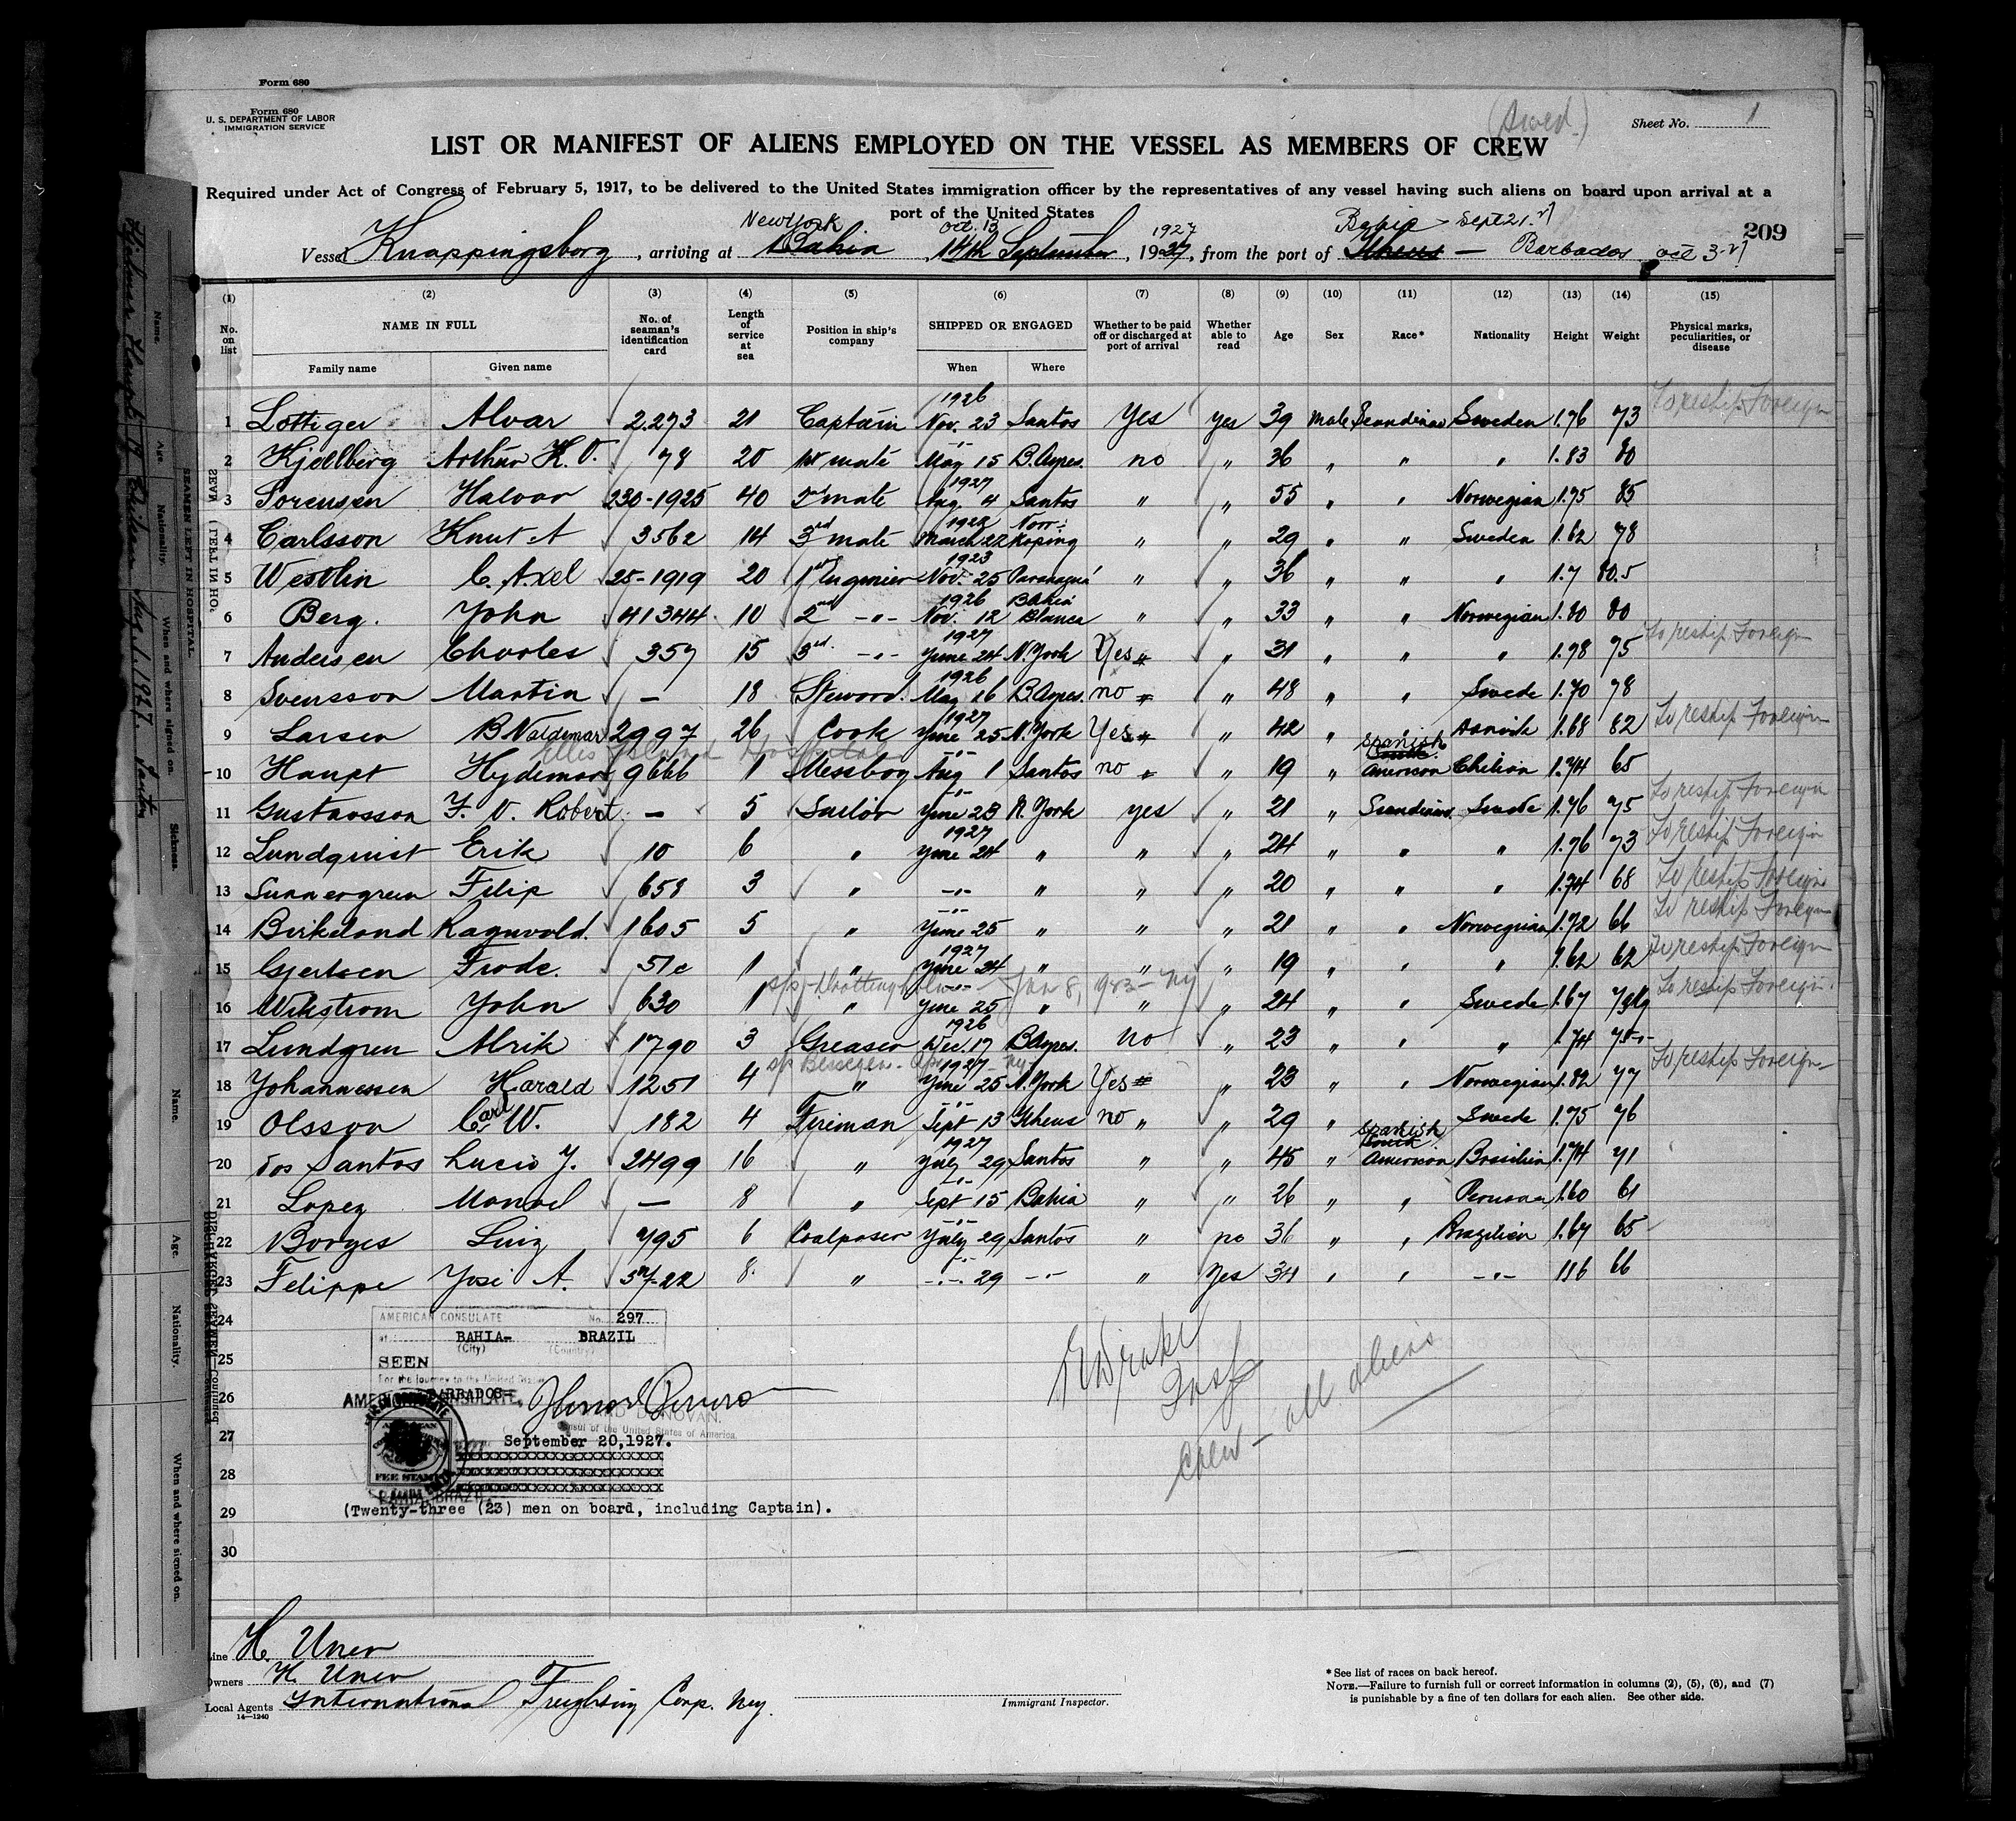 Form 680
Form 680
U. S. DEPARTMENT OF LABOR
IMMIGRATION SERVICE
(Swed.)
Sheet No. 1
LIST OR MANIFEST OF ALIENS EMPLOYED ON THE VESSEL AS MEMBERS OF CREW
Required under Act of Congress of February 5, 1917, to be delivered to the United States immigration officer by the representatives of any vessel having such aliens on board upon arrival at a
port of the United States
209
New York Oct. 13 1927 Bahia - Sept 21. 27
Vessel Knappingsborg, arriving at Bahia, 14th September, 1927, from the port of Ilheus - Barbados Oct 3-27
(1) (2) (3) (4) (5) (6) (7) (8) (9) (10) (11) (12) (13) (14) (15)
No. on list NAME IN FULL No. of seaman's identification card Length of service at sea Position in ship's company SHIPPED OR ENGAGED Whether to be paid off or discharged at port of arrival Whether able to read Age Sex Race* Nationality Height Weight Physical marks, peculiarities, or disease
Family name Given name When Where
1 Lottiger Alvar 2.273 21 Captain 1926 Nov. 23 Santos Yes yes 39 Male Scandinav Sweden 1.76 73 To reship Foreign
2 Kjellberg Arthur K. V. 78 20 1st mate -"- May 15 B. Ayres. no " 36 " " " 1.83 80
3 Sorensen Halvor 230-1925 40 2nd mate 1927 Aug. 4 Santos " " 55 " " Norwegian 1.75 85
4 Carlsson Knut A 3562 14 3rd mate 1922 March 22 Norrköping " " 29 " " Sweden 1.62 78
5 Westlin C. Axel 25-1919 20 1st Enginier 1923 Nov. 25 Paranagua " " 36 " " " 1.7 80.5
6 Berg. John 41344 10 2nd -"- 1926 Nov. 12 Bahia Blanca " " 33 " " Norwegian 1.80 80
7 Andersen Charles 357 15 3rd. -"- 1927 Yune 24 N. York Yes " 31 " " " 1.78 75 To reship Foreign
8 Svensson Martin - 18 Steward. 1926 May 16 B. Ayres. no " 48 " " Swede 1.70 78
9 Larsen B Valdemar 2997 26 Cook 1927 Yune 25 N. York Yes " 42 " " Danish 1.68 82 To reship Foreign
Ellis Island Hospital
10 Haupt Hydemar 9666 1 Messboy -"- Aug 1 Santos no " 19 " Spanish American Chilian 1.74 65
11 Gustavsson F. V. Robert - 5 Sailor -"- Yune 23 N. York yes " 21 " Scandinav. Swede 1.76 75 To reship Foreign
12 Lundquist Erik 10 6 " 1927 Yune 24 " " " 24 " " " 1.76 73 To reship Foreign
13 Sunnergren Filip 658 3 " -"- " " " 20 " " " 1.74 68 To reship Foreign
14 Birkeland Ragnvald. 1605 5 " -"- Yune 25 " " " 21 " " Norwegian 1.72 66 To reship Foreign
15 Gjertsen Frode. 51c 1 " 1927 Yune 24 " " " 19 " " " 1.62 62 To reship Foreign
s/s Drottningholm - Jan 8, 1923 - NY
16 Wikstrom John 630 1 " -"- Yune 25 " " " 24 " " Swede 1.67 79 Kg To reship Foreign.
17 Lundgren Alrik 1790 3 Greaser 1926 Dec. 17 B. Ayres. no " 23 " " " 1.74 75 -"-
18 Johannessen Harald 1251 4 " 1927 Yune 25 N. York Yes " 23 " " Norwegian 1.82 77 To reship Foreign
19 Olsson Carl W. 182 4 Fireman -"- Sept 13 Ilheus no " " 29 " " Swede 1.75 76
20 dos Santos Lucio Y. 2499 16 " 1927 Yuly 29 Santos " " 45 " Spanish American Brasilian 1.74 71
21 Lopez Manoel - 8 " -"- Sept 15 Bahia " " 26 " " Peruvian 1.60 61
22 Borges Luiz 795 6 Coalpaser -"- Yuly 29 Santos " no 36 " " Brazilian 1.67 65
23 Felippe Yosé A. 37-22 8. " -"- 29 -"- " Yes 34 " " -"- 116 66
24
25
26
27
28
29
30
AMERICAN CONSULATE No. 297
at BAHIA- BRAZIL
(City) (Country)
SEEN
For the journey to the United States
BARBADOS
AMERICAN CONSULATE,
HOWARD DONOVAN.
Consul of the United States of America.
September 20, 1927.
FEE STAMP
BAHIA, BRAZIL
(Twenty-three (23) men on board, including Captain).
Insp
Crew - all aliens
Line H. Uner
Owners H. Uner
Local Agents International Freighting Corp. N.Y.
14-1240
Immigrant Inspector.
*See list of races on back hereof.
NOTE.—Failure to furnish full or correct information in columns (2), (5), (6), and (7)
is punishable by a fine of ten dollars for each alien. See other side.
SEAMEN LEFT IN HOSPITAL.
Name. Age. Nationality. When and where signed on. Sickness.
Hjelmer Haupt 19 Chilean Aug. 1. 1927. Santos
Name. Age. Nationality. When and where signed on.